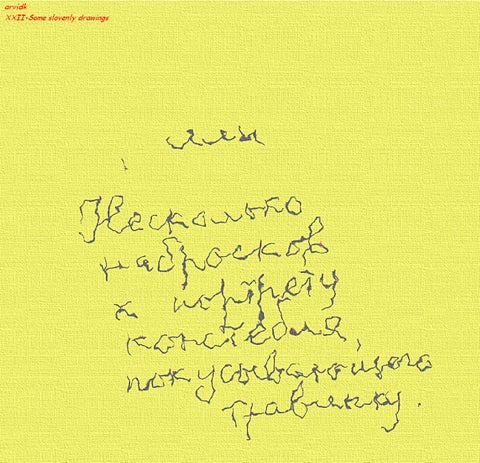 arvidk
XXII-Some slovenly drawings
или
Несколько
набросков
к портрету
констебля,
покусывающего
травинку.